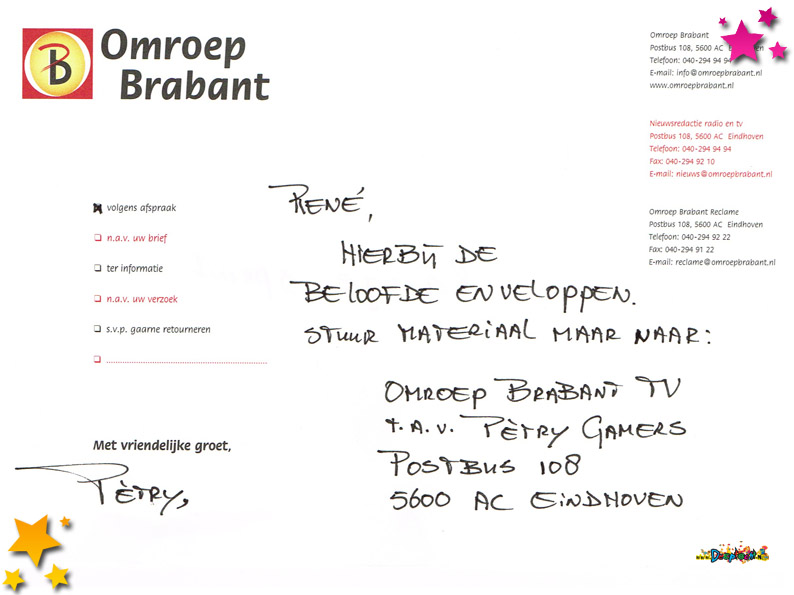 Omroep
Brabant
Omroep Brabant
Postbus 108, 5600 AC Eindhoven
Telefoon: 040-294 94 94
E-mail: info@omroepbrabant.nl
www.omroepbrabant.nl
Nieuwsredactie radio en tv
Postbus 108, 5600 AC Eindhoven
Telefoon: 040-294 94 94
Fax: 040-294 92 10
E-mail: nieuws@omroepbrabant.nl
Omroep Brabant Reclame
Postbus 108, 5600 AC Eindhoven
Telefoon: 040-294 92 22
Fax: 040-294 91 22
E-mail: reclame@omroepbrabant.nl
volgens afspraak
n.a.v. uw brief
ter informatie
n.a.v. uw verzoek
s.v.p. gaarne retourneren
RENÉ,
HIERBIJ DE
BELOOFDE ENVELOPPEN.
STUUR MATERIAAL MAAR NAAR:
OMROEP BRABANT TV
t.A.V. PÈTRY GAMERS
POSTBUS 108
5600 AC EINDHOVEN
Met vriendelijke groet,
PÈTRY,